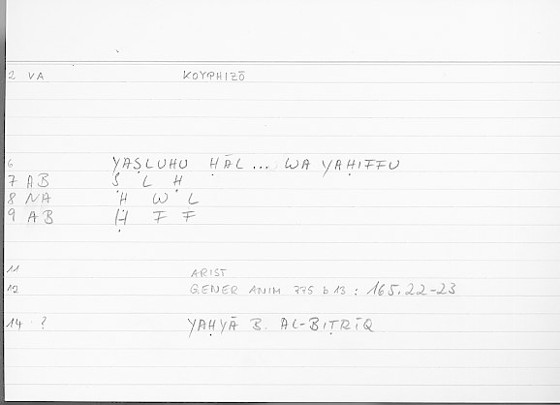 2 VA KOYPHIZŌ
6 YAṢLUḤU ḤĀL ... WA YAḤIFFU
7 AB Ṣ L Ḥ
8 NA Ḥ W L
9 AB Ḥ F F
11 ARIST
12 GENER ANIM 775 b 13 : 165.22-23
14 ? YAḤYĀ B. AL-BIṬRĪQ